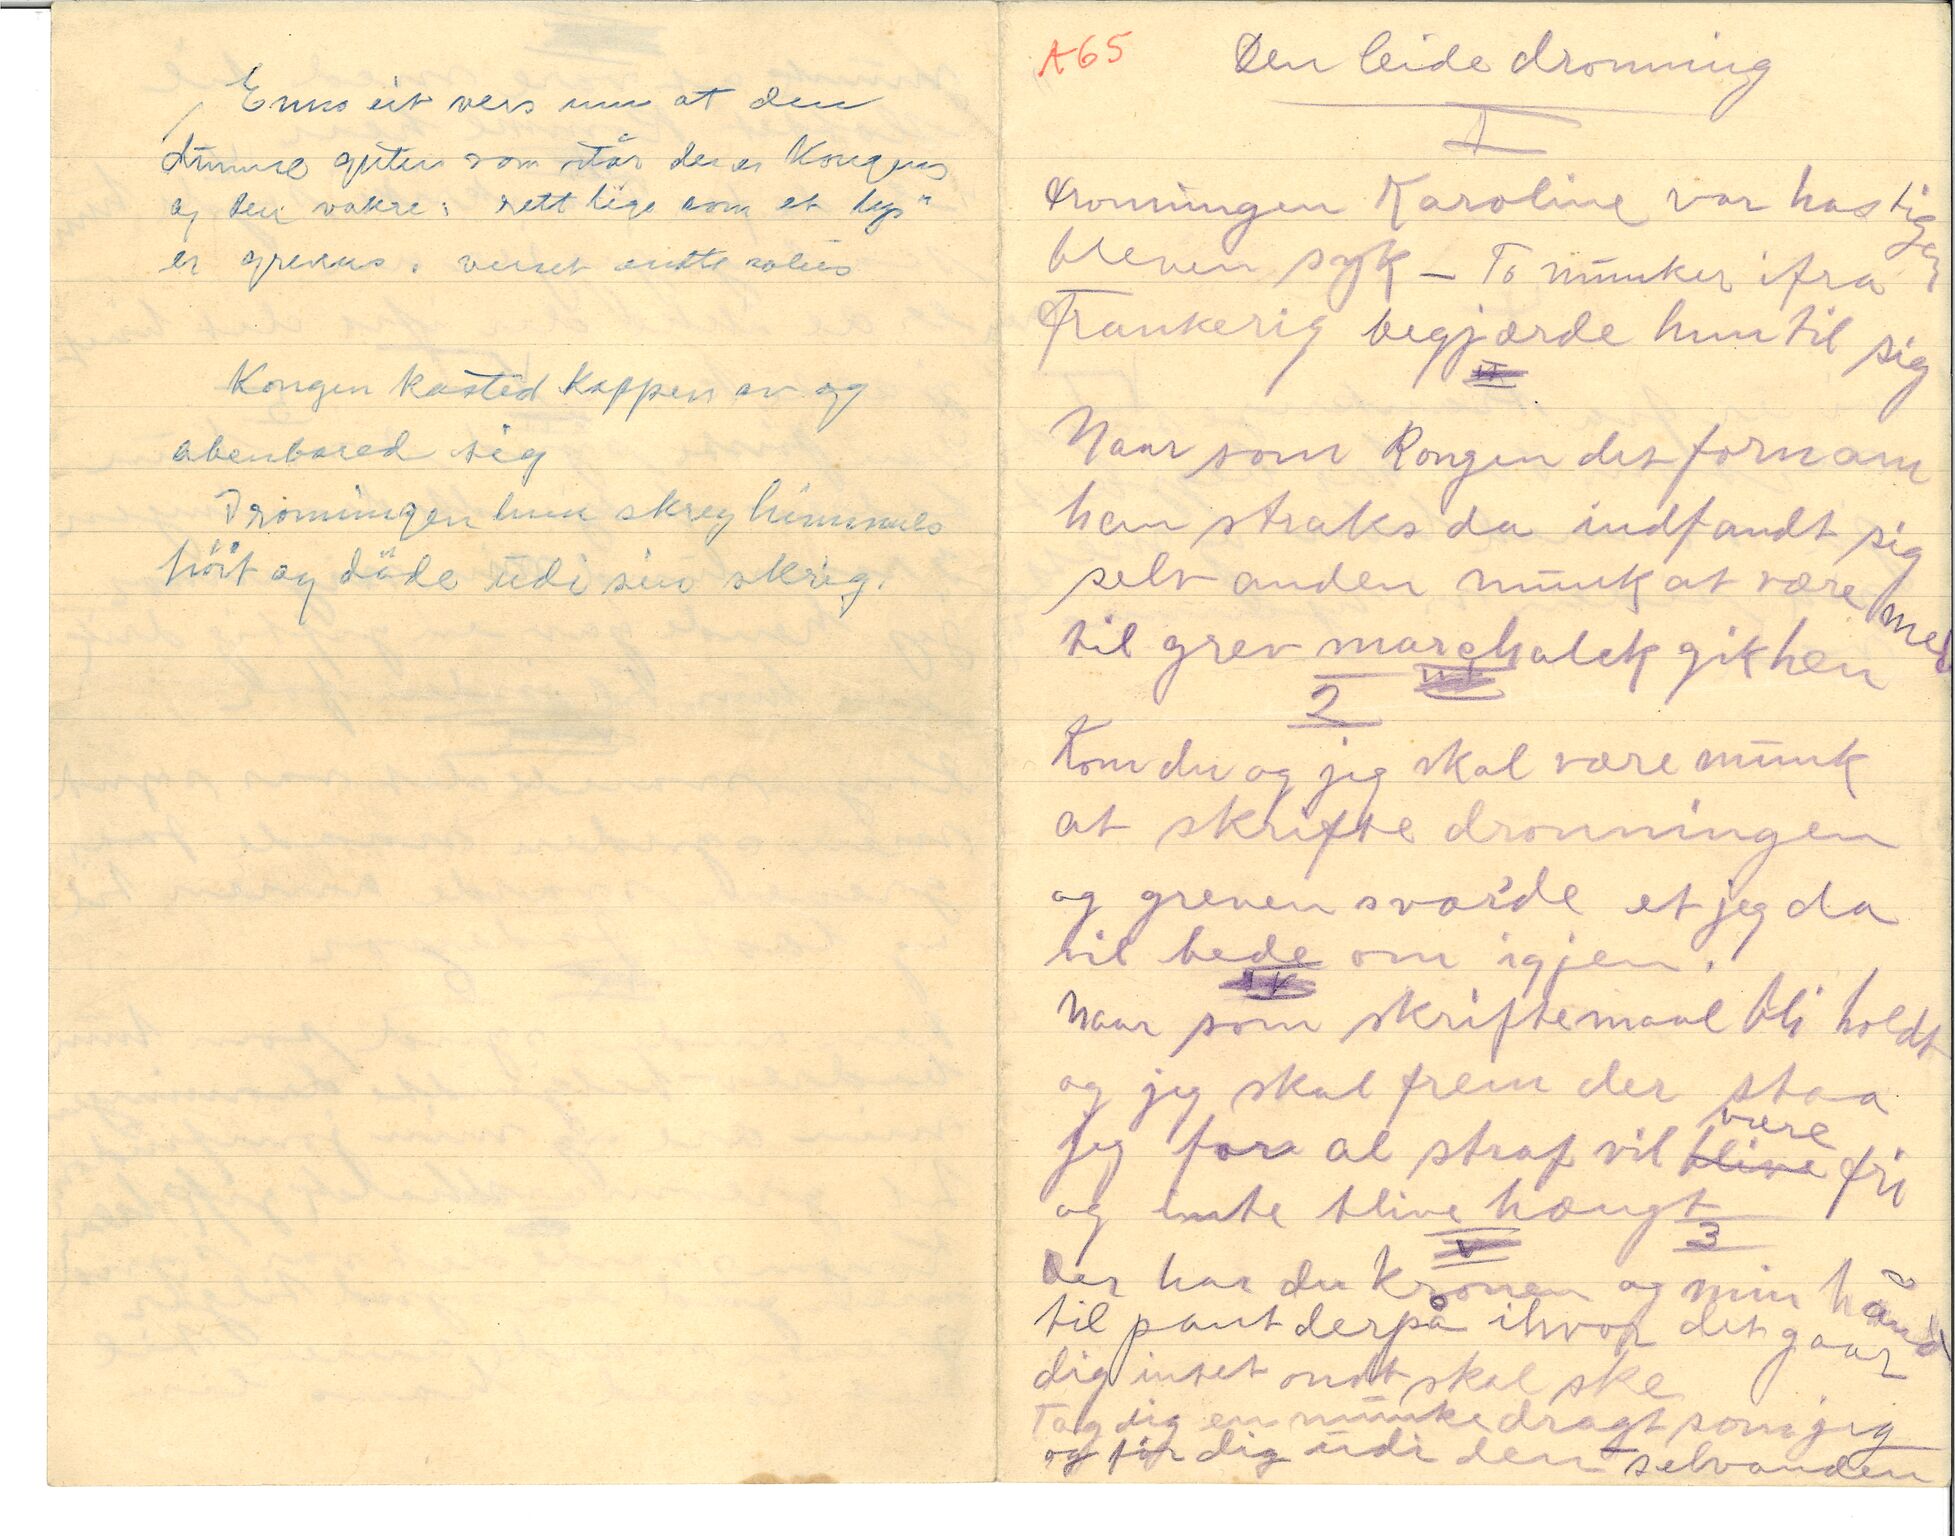 Enno eit vers um at den
dumme guten som står der er Kongens
og den vakre: rett lige som et lys"
er grevens. verset endte solvis
Kongen kasted Kappen av og
abenbared sig
Dronningen hun skreg himmels
höit og döde udi sin skrig.
A65
Den leide dronning
I
Dronningen Karoline var hastigen
bleven syk - To munker ifra
Frankerig begjærde hun til sig
Naar som Kongen det fornam
han straks da indfandt sig
selv anden munk at være med
til grev marchalek gik hen
2
Kom du og jeg skal være munk
at skrifte dronningen
og greven svarde et jeg da
vil bede om igjen.
IV
Naar som skriftemaal bli holdt
og jeg skal frem der staa
jeg fora al straf vil blive være fri
og inte blive hængt
V 3
Der har du kronen og min hånd
til pant derpå ihvor det gaar
dig intet ondt skal ske
Tag dig en munkedragt som jeg
og för dig udi den selvanden